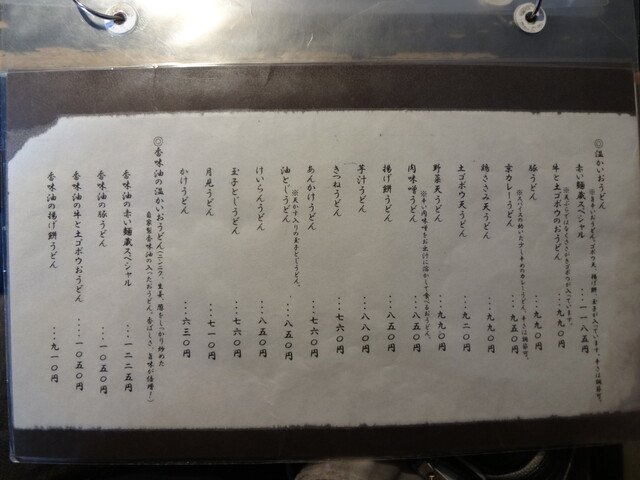 ◎温かいおうどん
赤い麺蔵スペシャル
・・・一一八五円
牛と土ゴボウのおうどん
・・・九九〇円
豚うどん
・・・九九〇円
京カレーうどん
・・・九五〇円
鶏ささみ天うどん
・・・九九〇円
土ゴボウ天うどん
・・・九二〇円
野菜天うどん
・・・九九〇円
肉味噌うどん
・・・八五〇円
揚げ餅うどん
・・・八五〇円
芋汁うどん
・・・八八〇円
きつねうどん
・・・七六〇円
あんかけうどん
・・・七六〇円
油とじうどん
※天かす入りの玉子とじうどん。
・・・八五〇円
けいらんうどん
・・・八五〇円
玉子とじうどん
・・・七六〇円
月見うどん
・・・七一〇円
かけうどん
・・・六三〇円
◎香味油の温かいおうどん(ニンニク、生姜、葱をしっかり炒めた
自家製香味油の入ったおうどん。香ばしさ、旨味が倍増!)
香味油の赤い麺蔵スペシャル
・・・一二二五円
香味油の豚うどん
・・・一〇五〇円
香味油の牛と土ゴボウおうどん
・・・一〇五〇円
香味油の揚げ餅うどん
・・・九一〇円